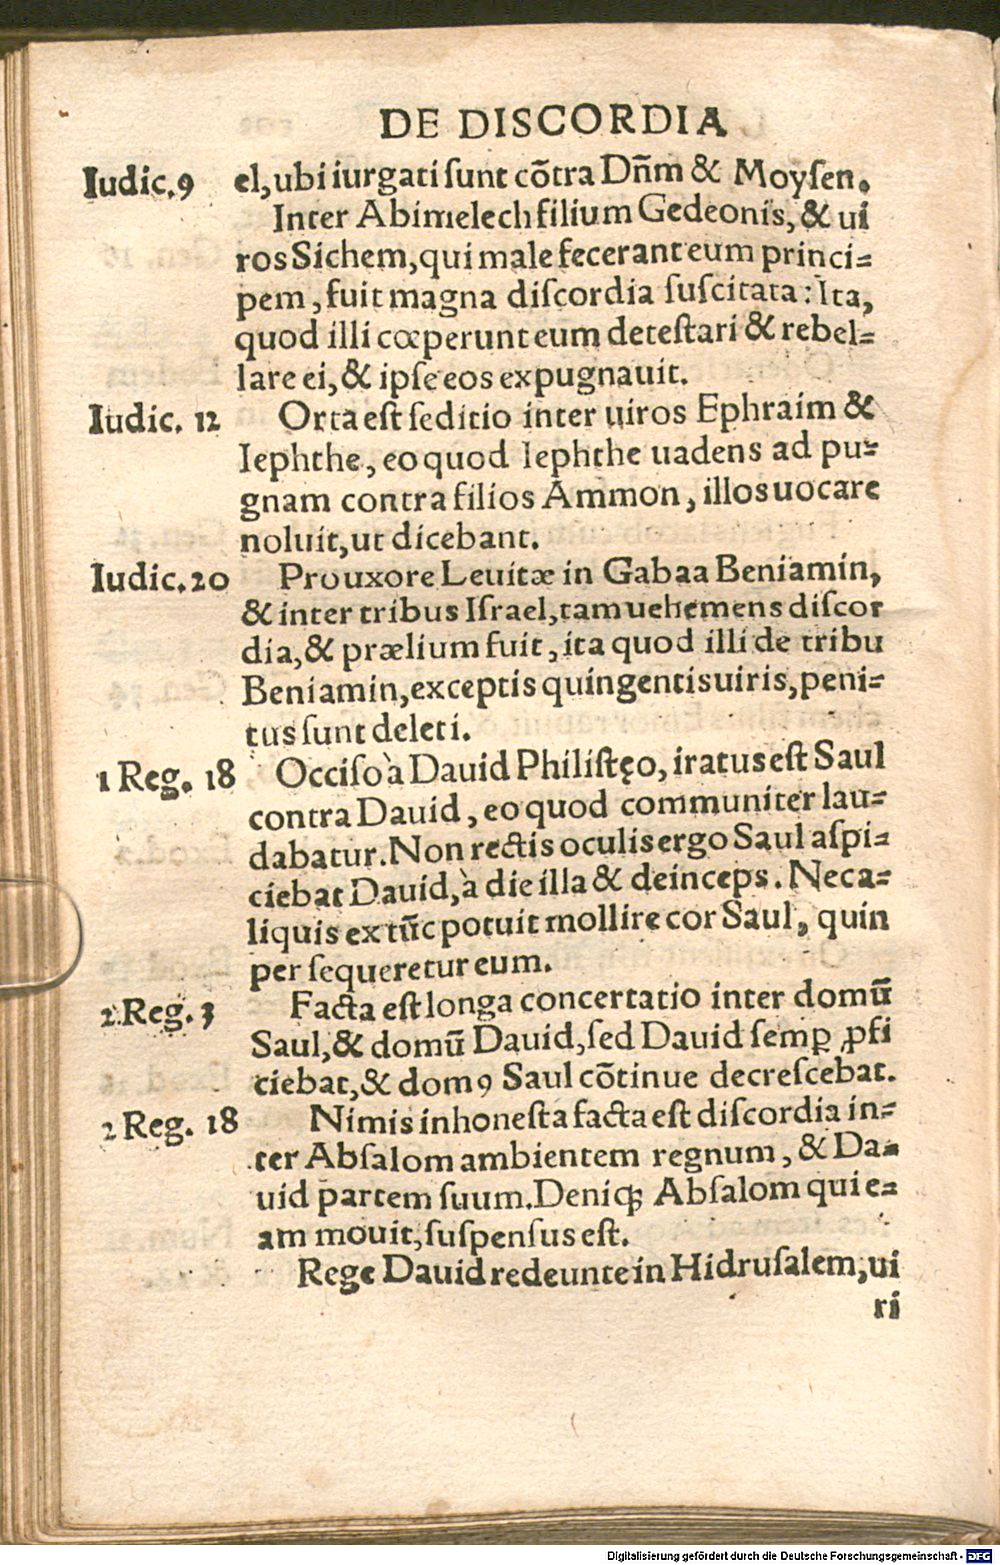 DE DISCORDIA
Iudic.9 el,ubi iurgati sunt cõtra Dñm & Moysen.
Inter Abimelech filium Gedeonis, & ui
ros Sichem,qui male fecerant eum princi=
pem, fuit magna discordia suscitata: Ita,
quod illi cœperunt eum detestari & rebel=
lare ei,& ipse eos expugnauit.
Iudic. 12 Orta est seditio inter uiros Ephraim &
Iephthe, eo quod Iephthe uadens ad pu=
gnam contra filios Ammon, illos uocare
noluit,ut dicebant.
Iudic.20 Pro uxore Leuitæ in Gabaa Beniamin,
& inter tribus Israel,tam uehemens discor
dia,& prælium fuit, ita quod illi de tribu
Beniamin,exceptis quingentis uiris,peni=
tus sunt deleti.
1 Reg. 18 Occiso à Dauid Philistęo, iratus est Saul
contra Dauid, eo quod communiter lau=
dabatur. Non rectis oculis ergo Saul aspi=
ciebat Dauid,à die illa & deinceps. Nec a=
liquis ex tũc potuit mollire cor Saul, quin
per sequeretur eum.
2 Reg. 3 Facta est longa concertatio inter domũ
Saul,& domũ Dauid,sed Dauid semꝑ ꝓfi
ciebat,& domꝰ Saul cõtinue decrescebat.
2 Reg. 18 Nimis inhonesta facta est discordia in=
ter Absalom ambientem regnum, & Da=
uid partem suum. Deniqꝫ Absalom qui e=
am mouit,suspensus est.
Rege Dauid redeunte in Hidrusalem,ui
ri
Digitalisierung gefördert durch die Deutsche Forschungsgemeinschaft - DFG